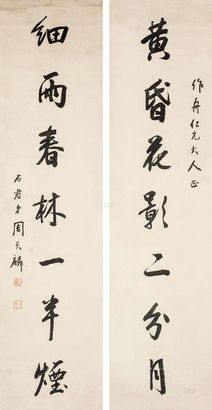 作舟仁兄大人正
黄昏花影二分月
細雨春林一半煙
石君弟周天麟